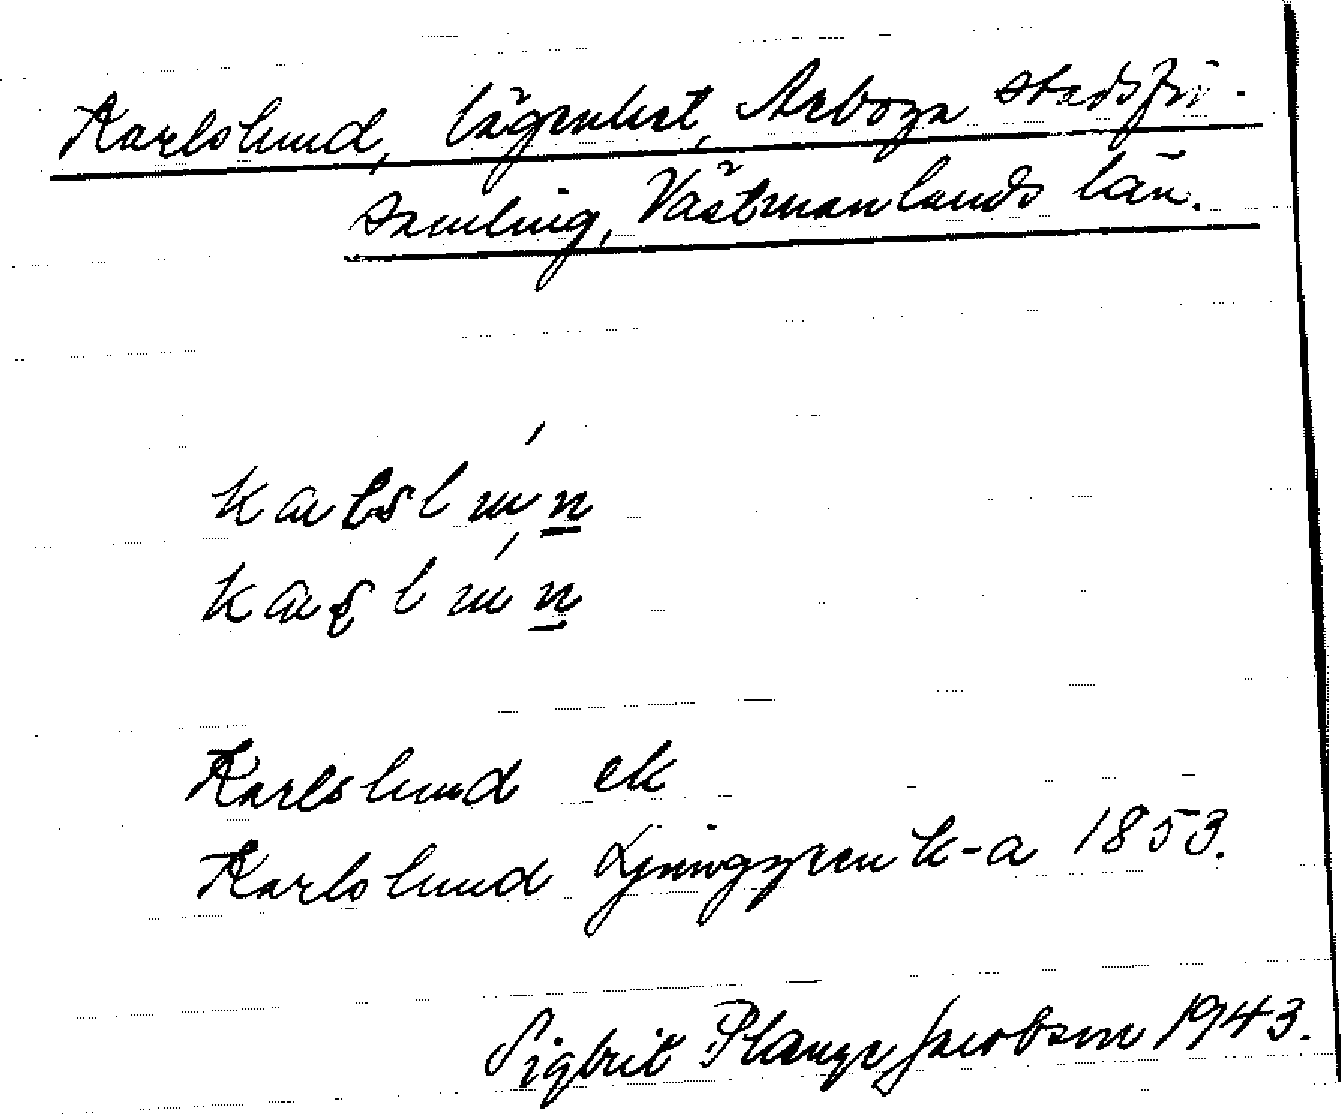 Karlslund, lägenhet, Arboga stadsför-
samling, Västmanlands län.
Karlslund ek
Karlslund Ljunggren k-a 1853.
Sigbrit Plange Jacobson 1943.